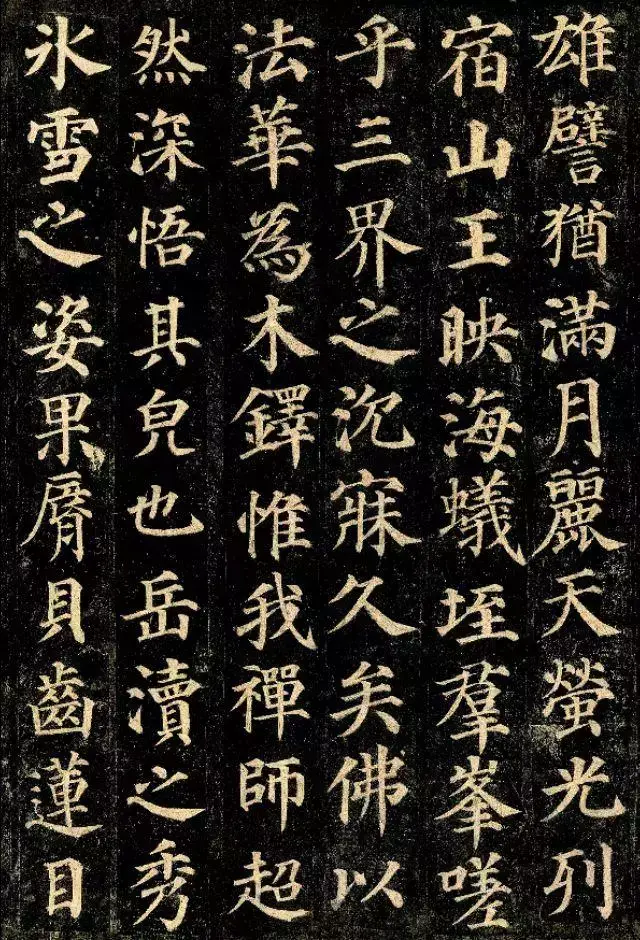 雄譬猶滿月麗天螢光列
宿山王映海蟻垤羣峯嗟
乎三界之沉寐久矣佛以
法華為木鐸惟我禪師超
然深悟其皃也岳瀆之秀
氷雪之姿果脣貝齒蓮目